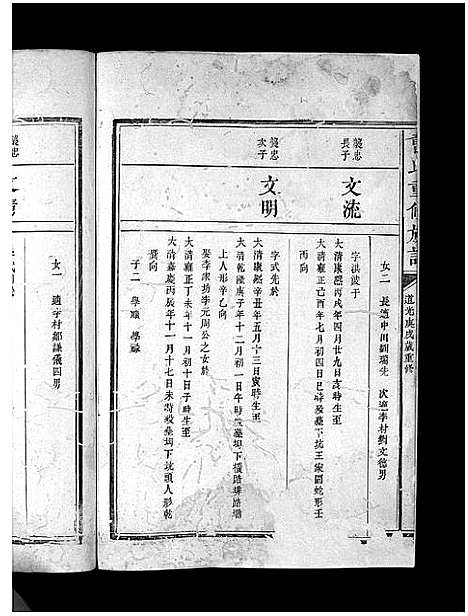 氏重修族譜
道光庚戌歲重修
女二 長適中川劉瑞先 次適李村劉文德男
龔忠長子
文流
字洪波于
大清康熙丙戌年四月廿九日亥時生至
大清雍正己酉年七月初六日巳時歿墓坳下坑王家園蛇形壬
丙向
龔忠次子
文明
字式先於
大清康熙辛丑年五月十三日寅時生至
大清乾隆庚子年十二月初一日午時歿墓坳下橫路埤路塝
上人形辛乙向
娶李家坊李元周公之女於
大清雍正丁未年十一月初十日子時生至
大清嘉慶丙辰年十一月十七日未時歿墓坳下坑頭人形乾
巽向
子二 學 學祿
女一 適李村鄒謙儀四男
文